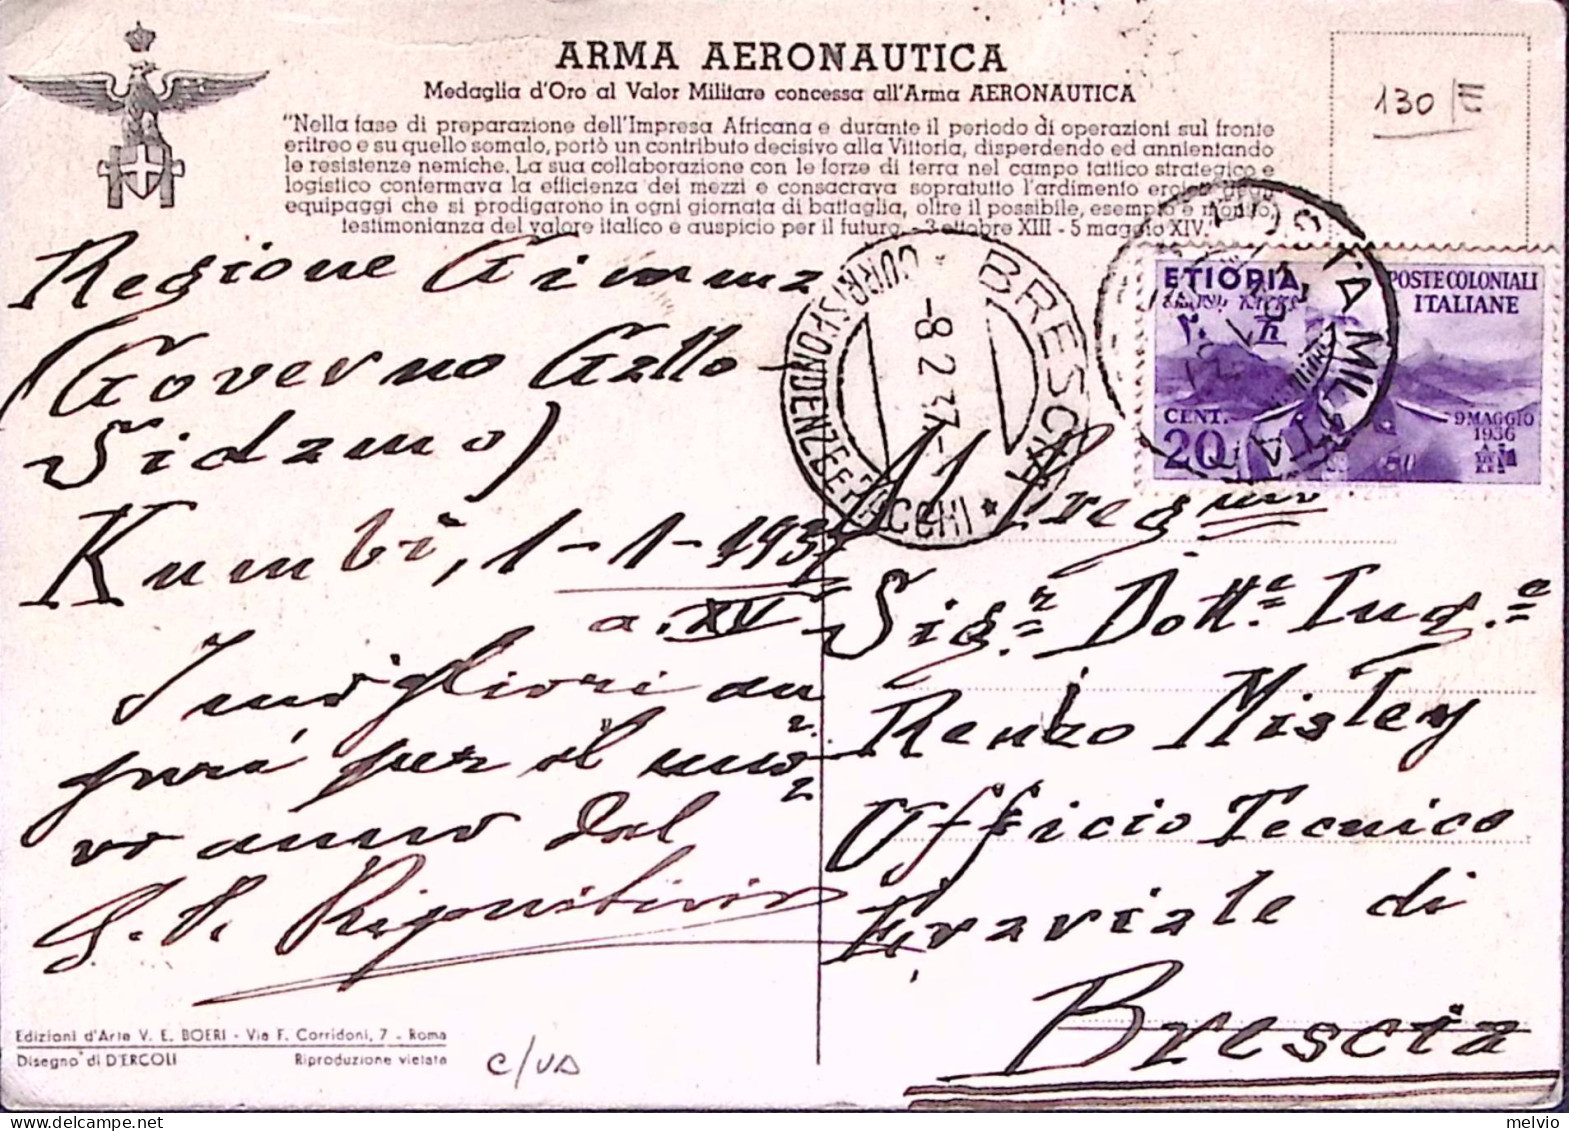 ARMA AERONAUTICA
Medaglia d'Oro al Valor Militare concessa all'Arma AERONAUTICA
"Nella fase di preparazione dell'Impresa Africana e durante il periodo di operazioni sul fronte
eritreo e su quello somalo, portò un contributo decisivo alla Vittoria, disperdendo ed annientando
le resistenze nemiche. La sua collaborazione con le forze di terra nel campo tattico strategico e
logistico confermava la efficienza dei mezzi e consacrava sopratutto l'ardimento eroico degli
equipaggi che si prodigarono in ogni giornata di battaglia, oltre il possibile, esempio e monito,
testimonianza del valore italico e auspicio per il futuro. - 3 ottobre XIII - 5 maggio XIV.
130/E
ETIOPIA
POSTE COLONIALI
ITALIANE
CENT.
20
9 MAGGIO
1936
POSTA MILITA
BRESCIA
-8.2.37-
CORRISPONDENZE E PACCHI
Regione Gimma
(Governo Galla
Sidamo)
Kumbi, 1-1-1937
a. XV
I migliori au
guri per il nuo
vo anno dal
Preg
Sig.r Dott.e Ing.e
Renzo Mistey
Ufficio Tecnico
Erariale di
Brescia
Edizioni d'Arte V. E. BOERI - Via F. Corridoni, 7 - Roma
Disegno di D'ERCOLI Riproduzione vietata
melvio